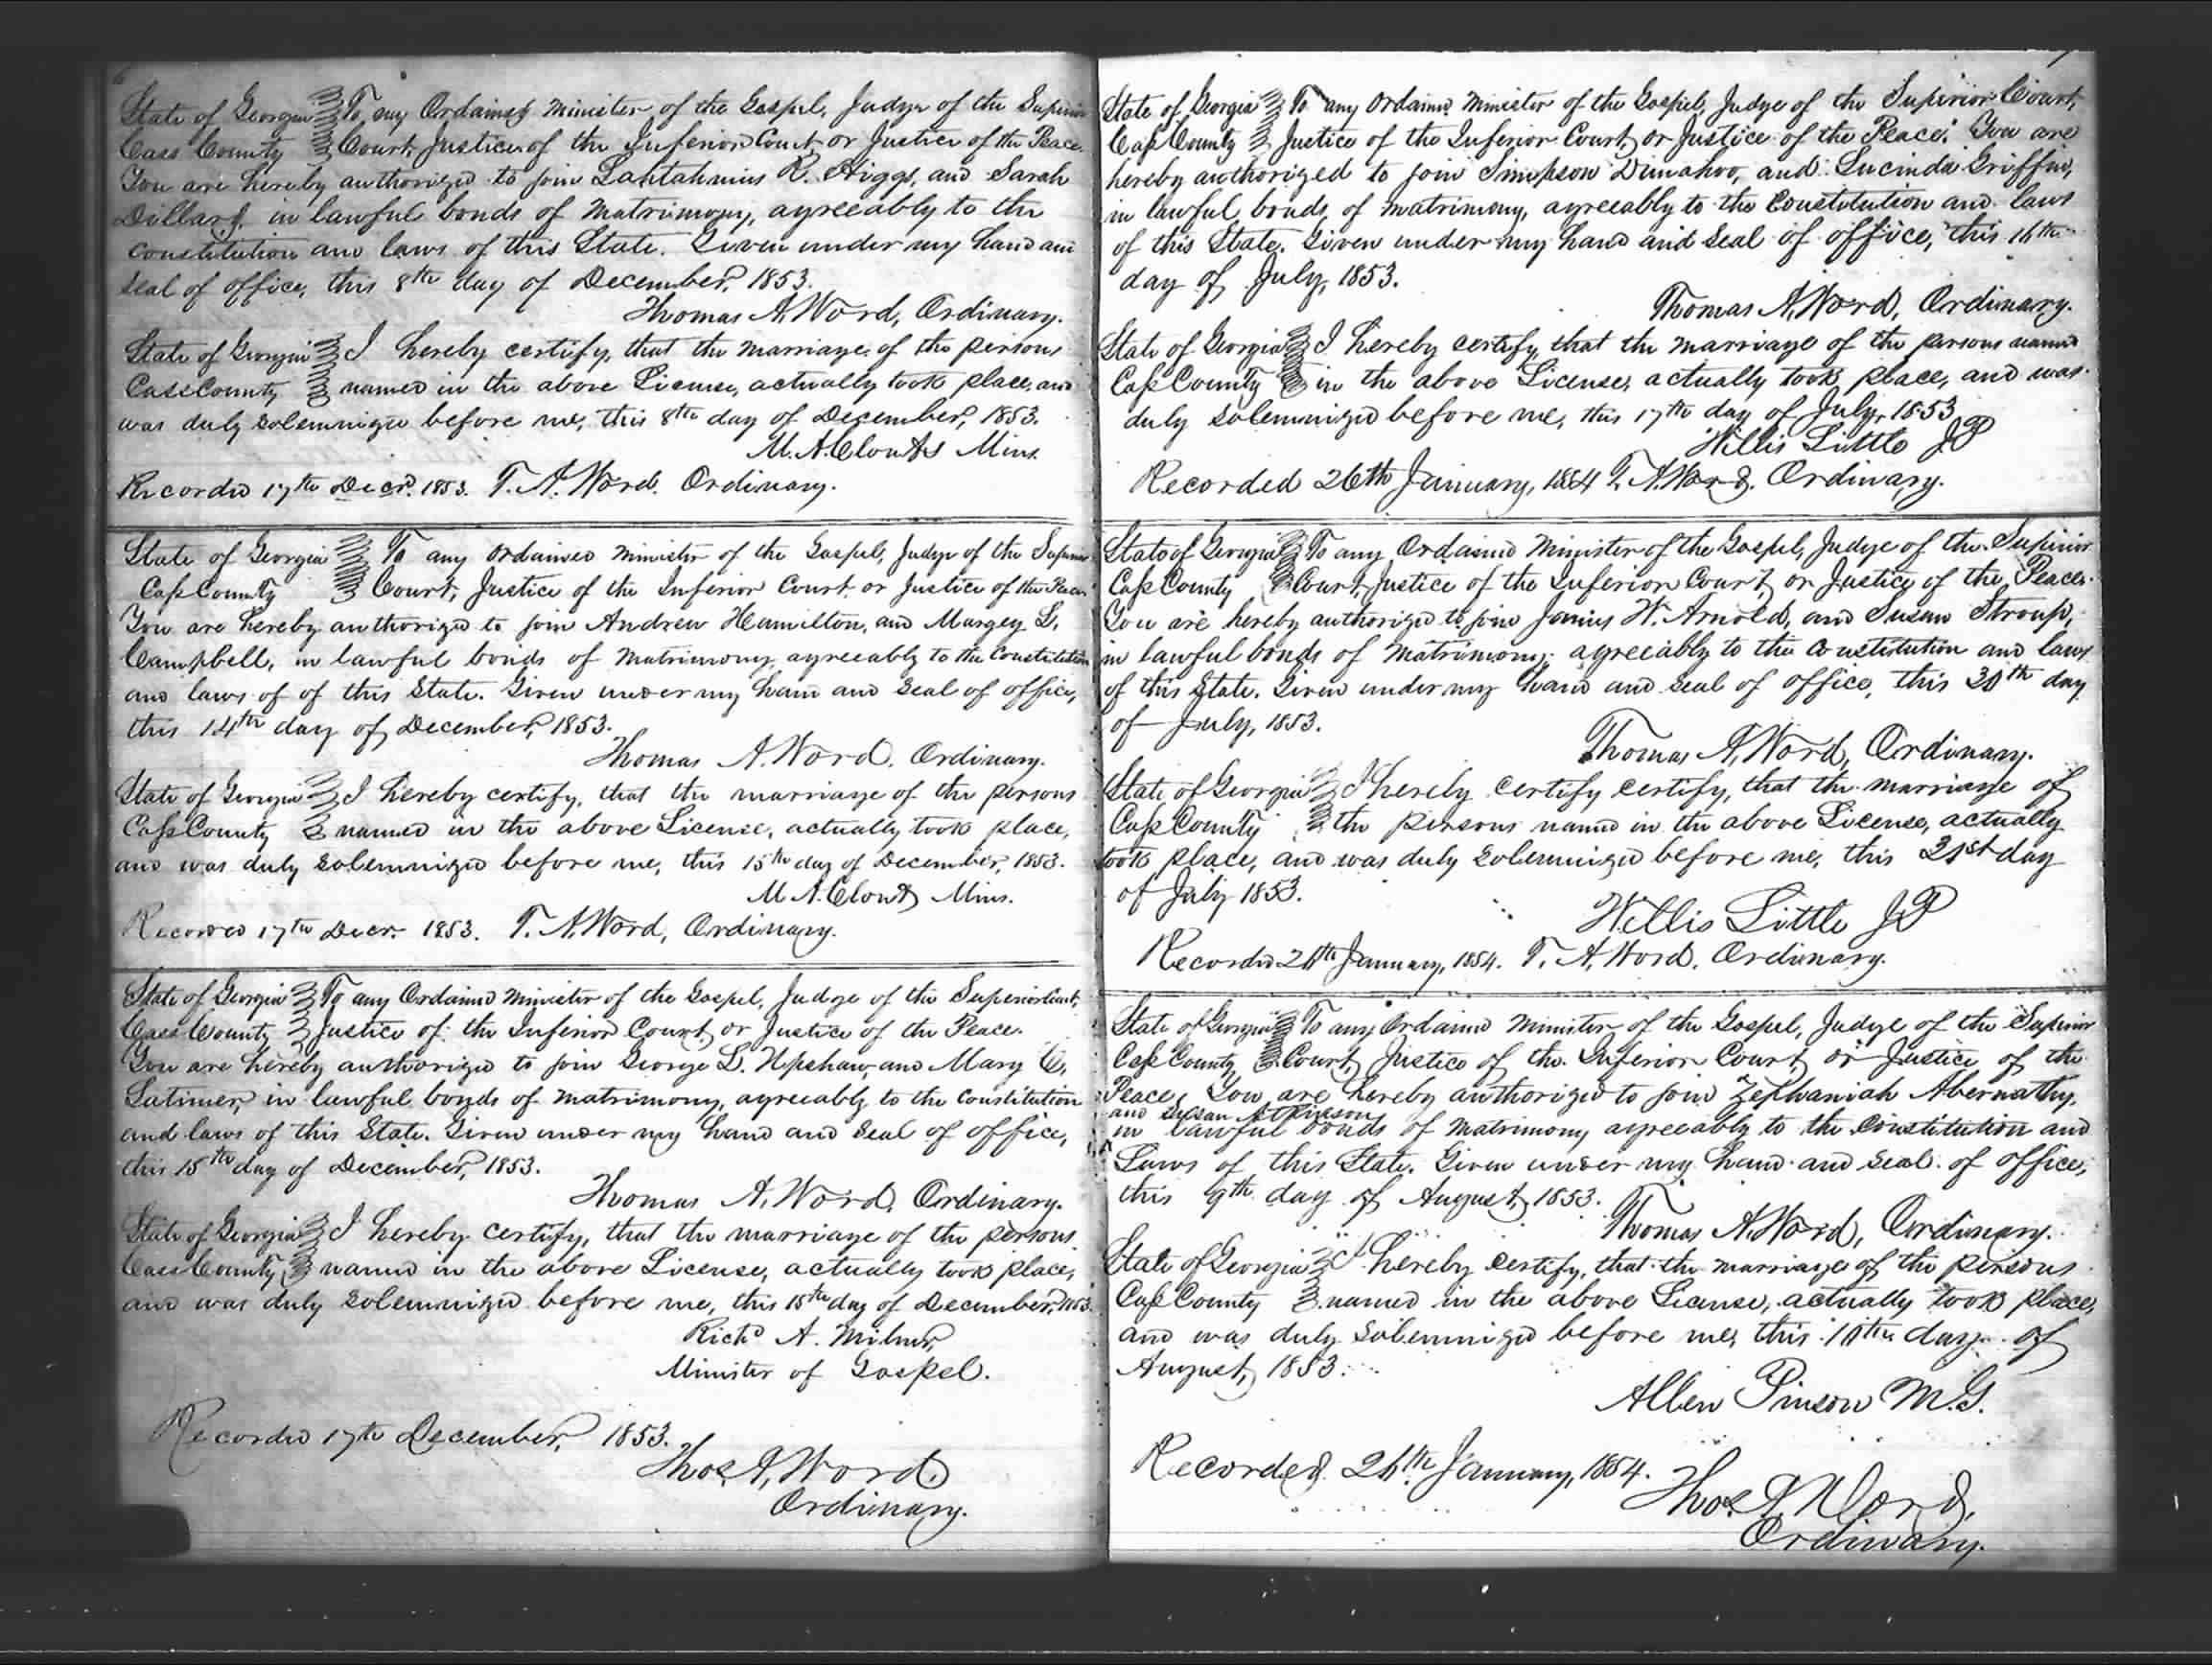 State of Georgia To any Ordained Minister of the Gospel, Judge of the Superior
Cass County Court, Justice of the Inferior Court, or Justice of the Peace.
You are hereby authorized to join R. Higgs, and Sarah
Dillard, in lawful bonds of Matrimony, agreeably to the
constitution and laws of this State. Given under my hand and
seal of office, this 8th day of December, 1853.
Thomas A. Word, Ordinary.
State of Georgia I hereby certify, that the marriage of the persons
Cass County named in the above License, actually took place, and
was duly solemnized before me, this 8th day of December, 1853.
M. A. Clonts Mins.
Recorded 17th Decr. 1853. T. A. Word. Ordinary.
State of Georgia To any Ordained Minister of the Gospel, Judge of the Superior
Cass County Court, Justice of the Inferior Court, or Justice of the Peace.
You are hereby authorized to join Andrew Hamilton, and Margey L.
Campbell, in lawful bonds of Matrimony, agreeably to the Constitution
and laws of of this State. Given under my hand and seal of office,
this 14th day of December, 1853.
Thomas A. Word. Ordinary.
State of Georgia I hereby certify, that the marriage of the persons
Cass County named in the above License, actually took place,
and was duly solemnized before me, this 15th day of December, 1853.
M A. Clonts Mins.
Recorded 17th Decr. 1853. T. A. Word, Ordinary.
State of Georgia To any Ordained Minister of the Gospel, Judge of the Superior Court,
Cass County Justice of the Inferior Court, or Justice of the Peace.
You are hereby authorized to join George L. Upshaw, and Mary C.
Latimer, in lawful bonds of matrimony, agreeably to the Constitution
and laws of this State. Given under my hand and seal of office,
this 15th day of December, 1853.
Thomas A. Word, Ordinary.
State of Georgia I hereby certify, that the marriage of the persons
Cass County, named in the above License, actually took place,
and was duly solemnized before me, this 15th day of December, 1853.
Richd A. Milner,
Minister of Gospel.
Recorded 17th December, 1853.
Thos. A. Word.
Ordinary.
7
State of Georgia To any Ordained Minister of the Gospel, Judge of the Superior Court,
Cass County Justice of the Inferior Court, or Justice of the Peace. You are
hereby authorized to join Simpson Dunahoo, and Lucinda Griffin,
in lawful bonds of matrimony, agreeably to the Constitution and laws
of this State. Given under my hand and seal of office, this 16th
day of July, 1853.
Thomas A. Word, Ordinary.
State of Georgia I hereby certify, that the marriage of the persons named
Cass County in the above License, actually took place, and was
duly solemnized before me, this 17th day of July, 1853
Willis Little JP
Recorded 26th January, 1854 T. A. Word. Ordinary.
State of Georgia To any Ordained Minister of the Gospel, Judge of the Superior
Cass County Court, Justice of the Inferior Court, or Justice of the Peace.
You are hereby authorized to join Junius W. Arnold, and Susan Stroup,
in lawful bonds of Matrimony, agreeably to the Constitution and laws
of this State. Given under my hand and seal of office, this 30th day
of July, 1853.
Thomas A. Word, Ordinary.
State of Georgia I hereby certify certify, that the marriage of
Cass County the persons named in the above License, actually
took place, and was duly solemnized before me, this 31st day
of July 1853.
Willis Little JP
Recorded 26th January, 1854. T. A. Word. Ordinary.
State of Georgia To any Ordained Minister of the Gospel, Judge of the Superior
Cass County Court, Justice of the Inferior Court, or Justice of the
Peace, You are hereby authorized to join Zephaniah Abernathy,
and Susan Atkinson
in lawful bonds of Matrimony agreeably to the Constitution and
Laws of this State. Given under my hand and seal of office,
this 9th day of August, 1853.
Thomas A. Word, Ordinary.
State of Georgia I hereby certify, that the marriage of the persons
Cass County named in the above License, actually took place,
and was duly solemnized before me, this 10th day of
August, 1853.
Allen Pinson M.G.
Recorded 26th January, 1854.
Thos. A. Word,
Ordinary.